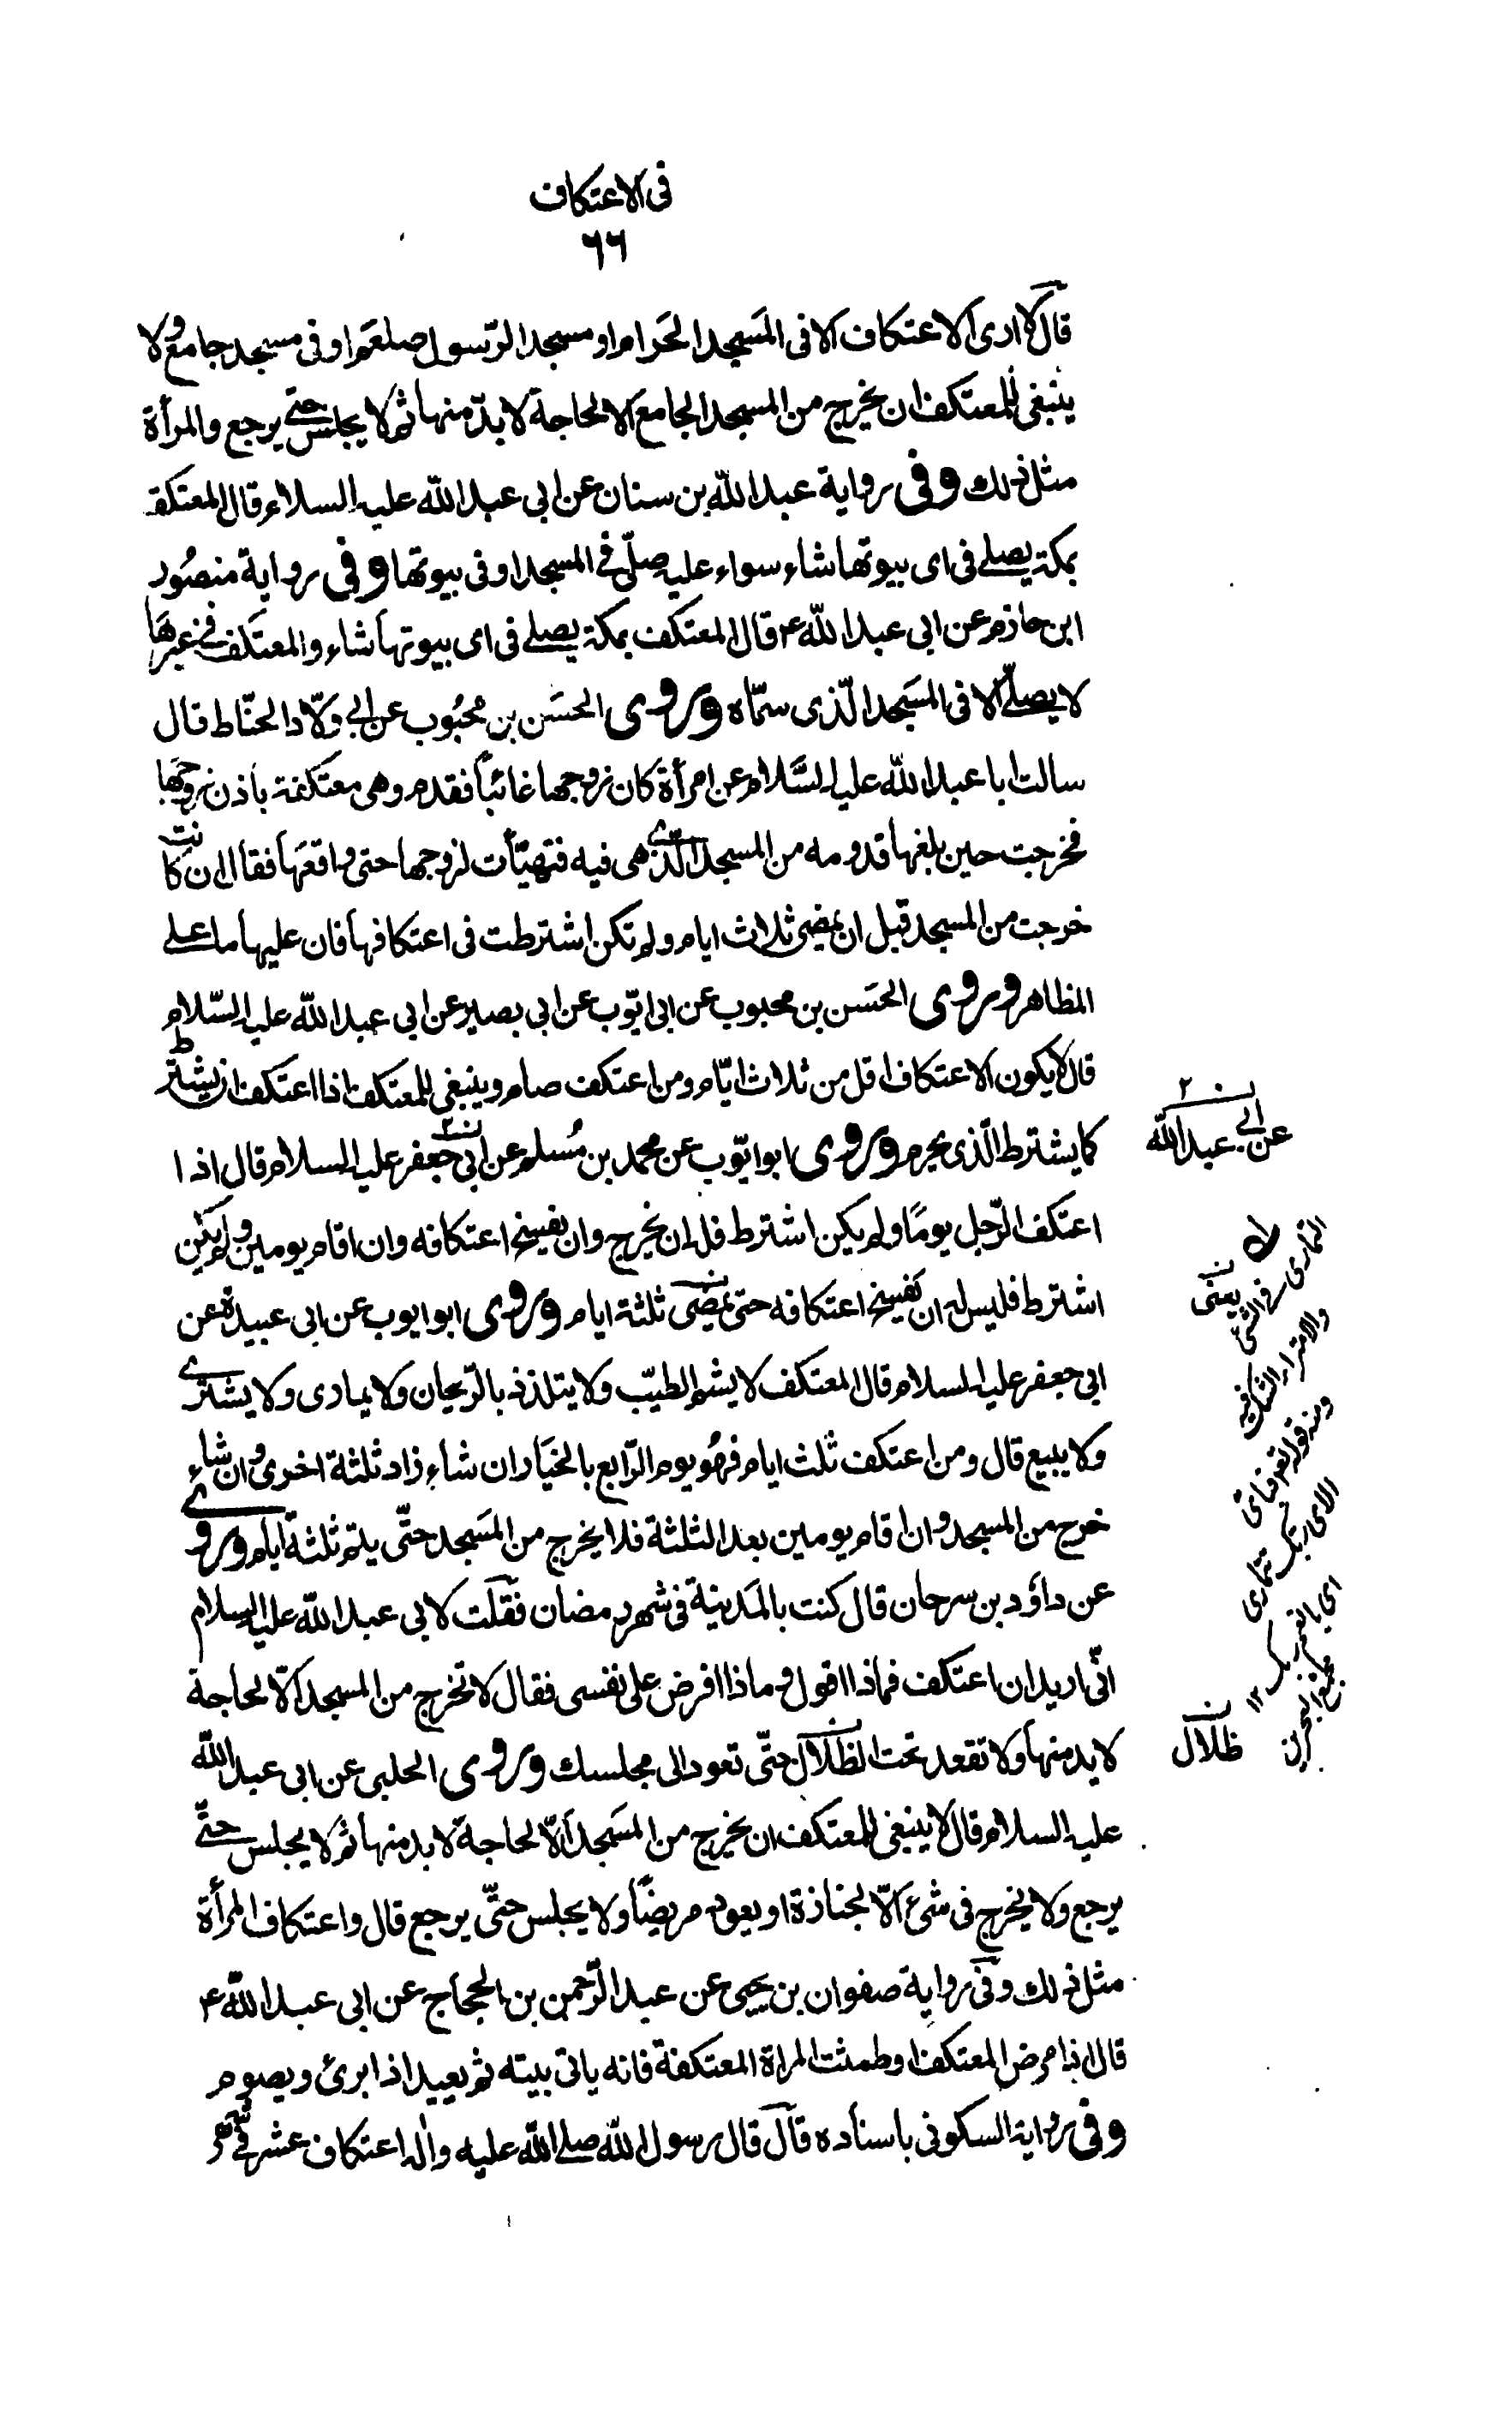 فى الاعتكاف
٦٦
قال لا ارى الاعتكاف الا فى المَسجد الحَرام او مسجد الرّسول صلعم او فى مسجد جامع ولا
ينبغى للمعتكف ان يخرج من المسجد الجامع الا لحاجة لا بدّ منها ثم لا يجلس حتى يرجع والمرأة
مثل ذلك وفى رواية عبد اللّه بن سنان عن ابى عبد اللّه عليه السلام قال المعتكف
بمكة يصلے فى اى بيوتها شاء سواء عليه صلّى فے المسجد او فى بيوتها وفى رواية منصُور
ابن حازم عن ابى عبد اللّه ع قال المعتكف بمكة يصلے فى اى بيوتها شاء والمعتكف فے غيرها
لا يصلّے الا فى المسَجد الّذى سمّاه وروى الحسَن بن محبُوب عن ابى ولّاد الحنّاط قال
سالت ابا عبد اللّه عليه السَّلام عن امرأة كان زوجها غائباً فقدم وهى معتكفة باذن زوجها
فخرجت حين بلغها قدومه من المسجد الّذے هى فيه فتهيّأت لزوجها حتى واقعَها فقال ان كانت
خرجت من المسجد قبل ان يمضى ثلاث ايام ولم تكن اشترطت فى اعتكافها فان عليها ما علے
المظاهر وروى الحسَن بن محبوب عن ابى ايّوب عن ابى بصير عن ابى عبد اللّه عليه السّلام
قال لا يكون الاعتكاف اقل من ثلاث ايّام ومن اعتكف صام وينبغى للمعتكف اذا اعتكف ان يشترط
كما يشترط الّذى يحرم وروى ابو ايّوب عن محمد بن مُسلم عن ابى جعفر عليه السلام قال اذا
اعتكف الرّجل يومًا ولم يكن اشترط فله ان يخرج وان يفسخ اعتكافه وان اقام يومين ولم يكن
اشترط فليس له ان يفسخ اعتكافه حتى يمضى ثلثة ايام وروى ابو ايوب عن ابى عبيدة عن
ابى جعفر عليه السلام قال المعتكف لا يشم الطيّب ولا يتلذذ بالرّيحان ولا يمارى ولا يشترے
ولا يبيع قال ومن اعتكف ثلث ايام فهُو يوم الرّابع بالخيَار ان شاء زاد ثلثة اخرى وان شاء
خرج من المسجد وان اقام يومين بعد الثلثة فلا يخرج من المسَجد حتّى يتم ثلثة ايام وروے
عن داؤد بن سرحان قال كنت بالمَدينة فى شهر رمضان فقلت لابى عبد اللّه عليه السلام
انّى اريد ان اعتكف فماذا اقول وماذا افرض على نفسى فقال لا تخرج من المسجد الّا لحاجة
لا بد منها ولا تقعد تحت الظلال حتّى تعود الى مجلسك وروى الحلبى عن ابى عبد اللّه
عليه السلام قال لا ينبغى للمعتكف ان يخرج من المسَجد الّا لحاجة لا بد منها ثم لا يجلس حتّے
يرجع ولا يخرج فى شىء الّا لجنازة او يعود مريضًا ولا يجلس حتّى يرجع قال واعتكاف المرأة
مثل ذلك وفى رواية صفوان بن يحيى عن عبد الرّحمن بن الحجاج عن ابى عبد اللّه ع
قال اذا مرض المعتكف او طمثت المراة المعتكفة فانه ياتى بيته ثم يعيد اذا برئ ويصوم
وفى رواية السكونى باسناده قال قال رسول اللّه صلے اللّه عليه واله اعتكاف عشر فے شهر
عن ابى عبد اللّه
يعنى
التمارى فى الشئ
والامتراء الشك فيه
ومنه قوله تعم فباى
الاى ربك تتمارى
مجمع البحرين
ظلال